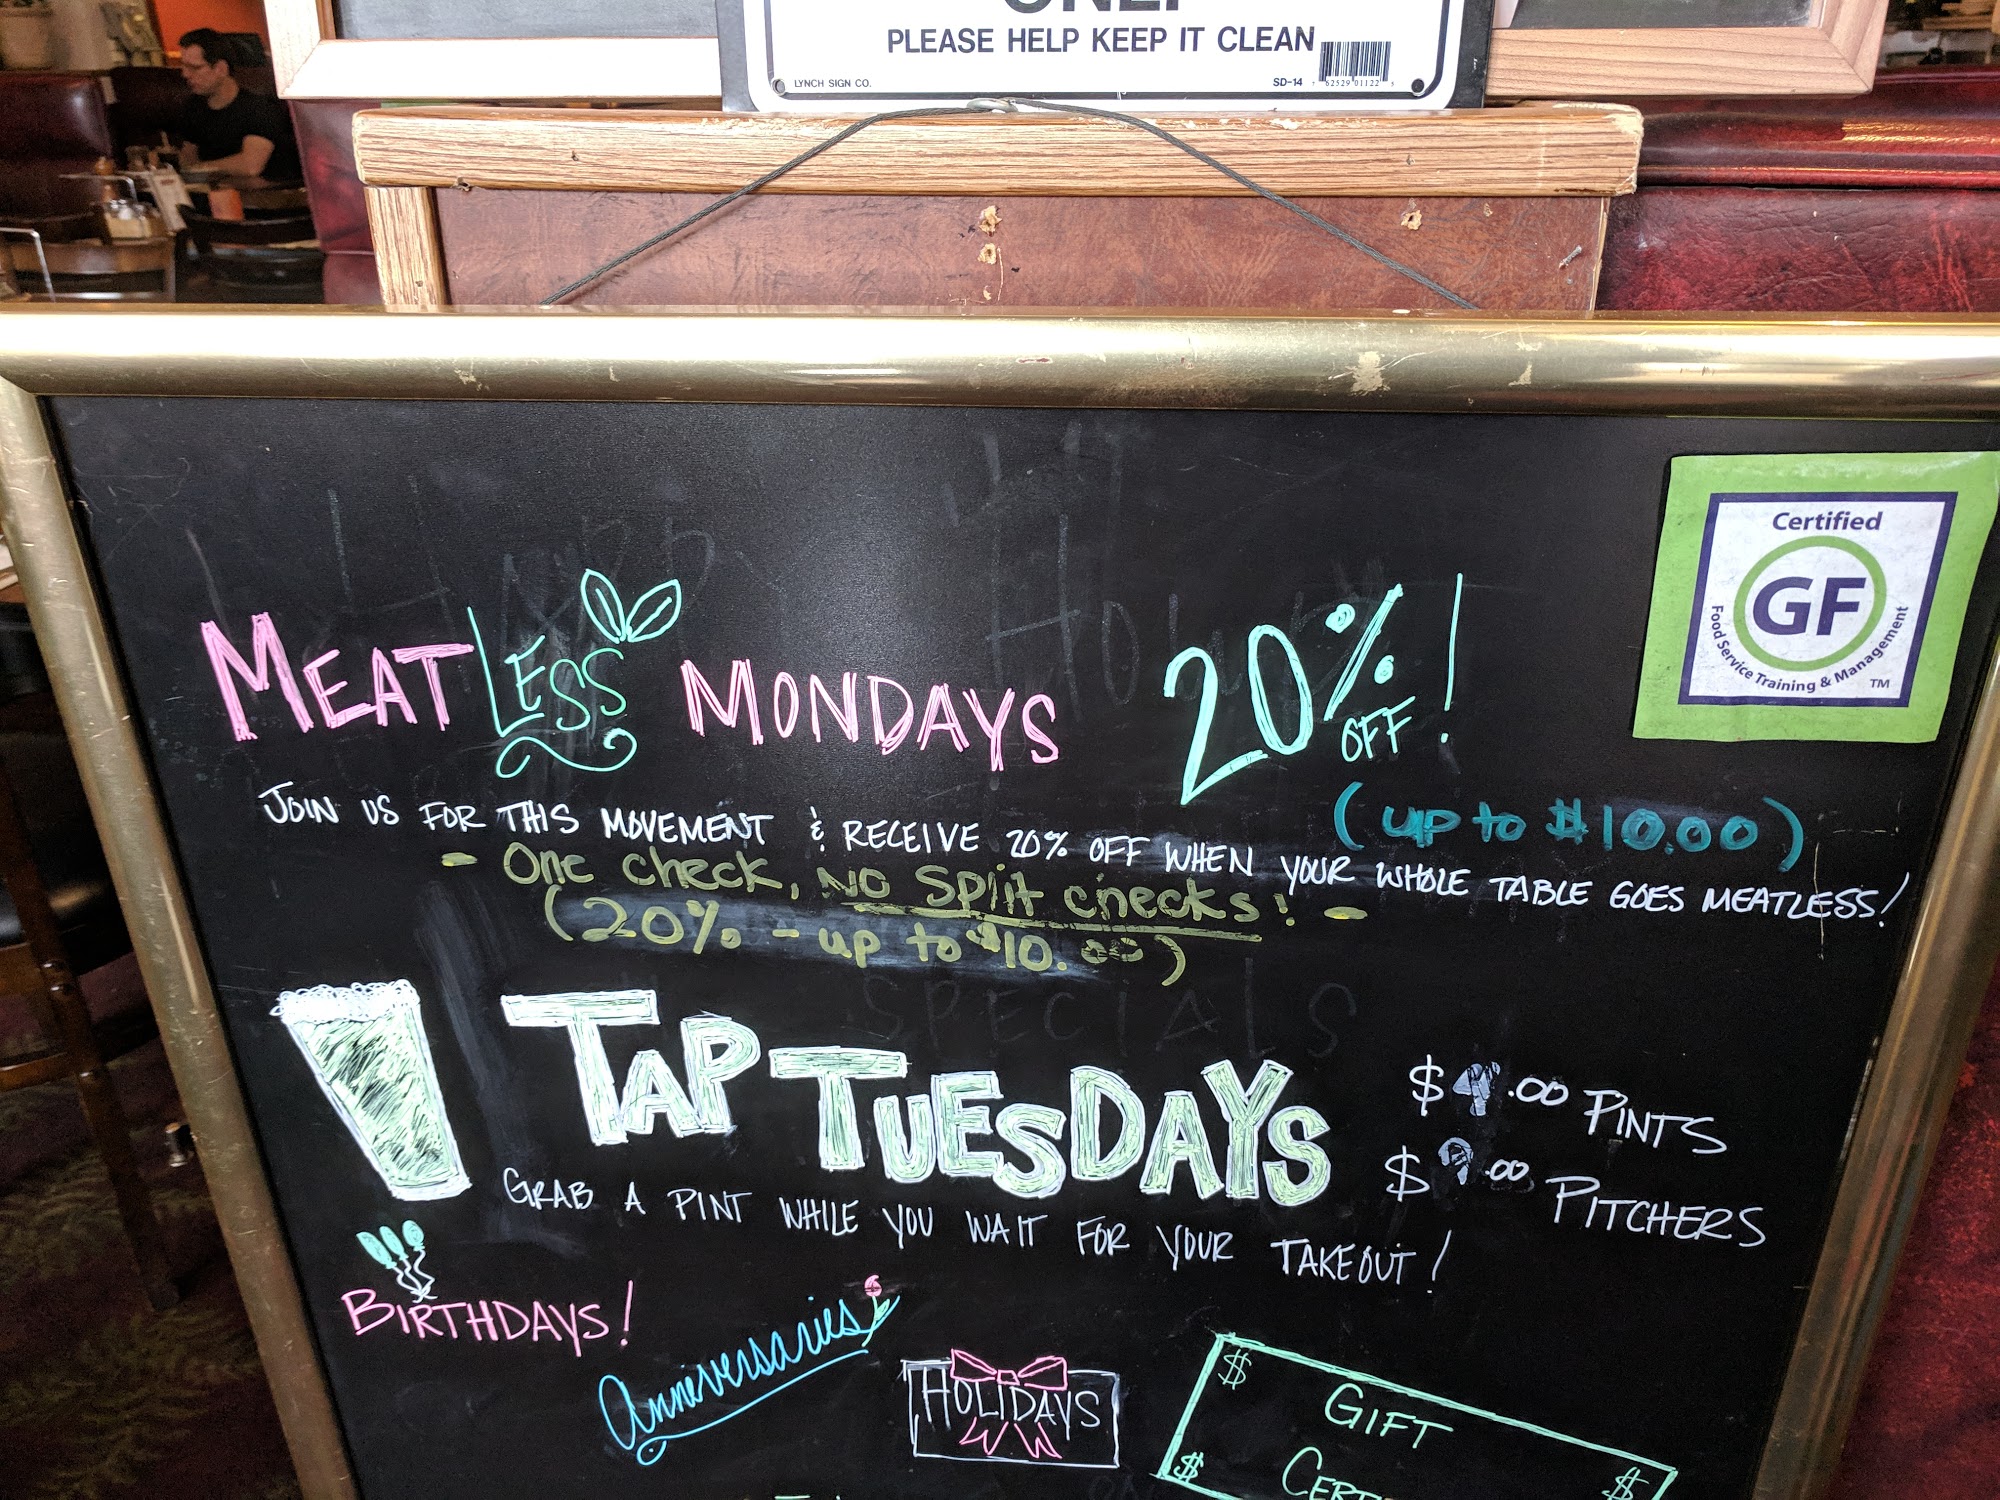 PLEASE HELP KEEP IT CLEAN
LYNCH SIGN CO.
SD-14
Certified
GF
Food Service Training & Management
TM
MEATLESS MONDAYS 20% OFF!
(up to $10.00)
JOIN US FOR THIS MOVEMENT & RECEIVE 20% OFF WHEN YOUR WHOLE TABLE GOES MEATLESS!
- One check, NO Split checks! -
(20% - up to $10.00)
SPECIALS
TAP TUESDAYS
$4.00 PINTS
$9.00 PITCHERS
GRAB A PINT WHILE YOU WAIT FOR YOUR TAKEOUT!
BIRTHDAYS!
Anniversaries
HOLIDAYS
$ GIFT
$ CERT $